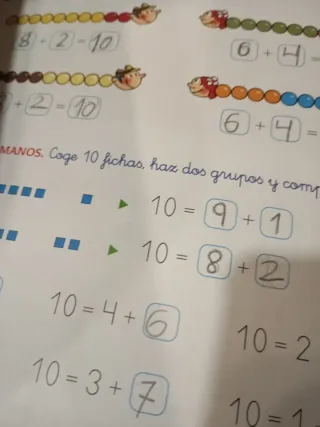 8 + 2 = 10
6 + 4 =
+ 2 = 10
6 + 4 =
MANOS. Coge 10 fichas, haz dos grupos y comp
10 = 9 + 1
10 = 8 + 2
10 = 4 + 6
10 = 2
10 = 3 + 7
10 = 1